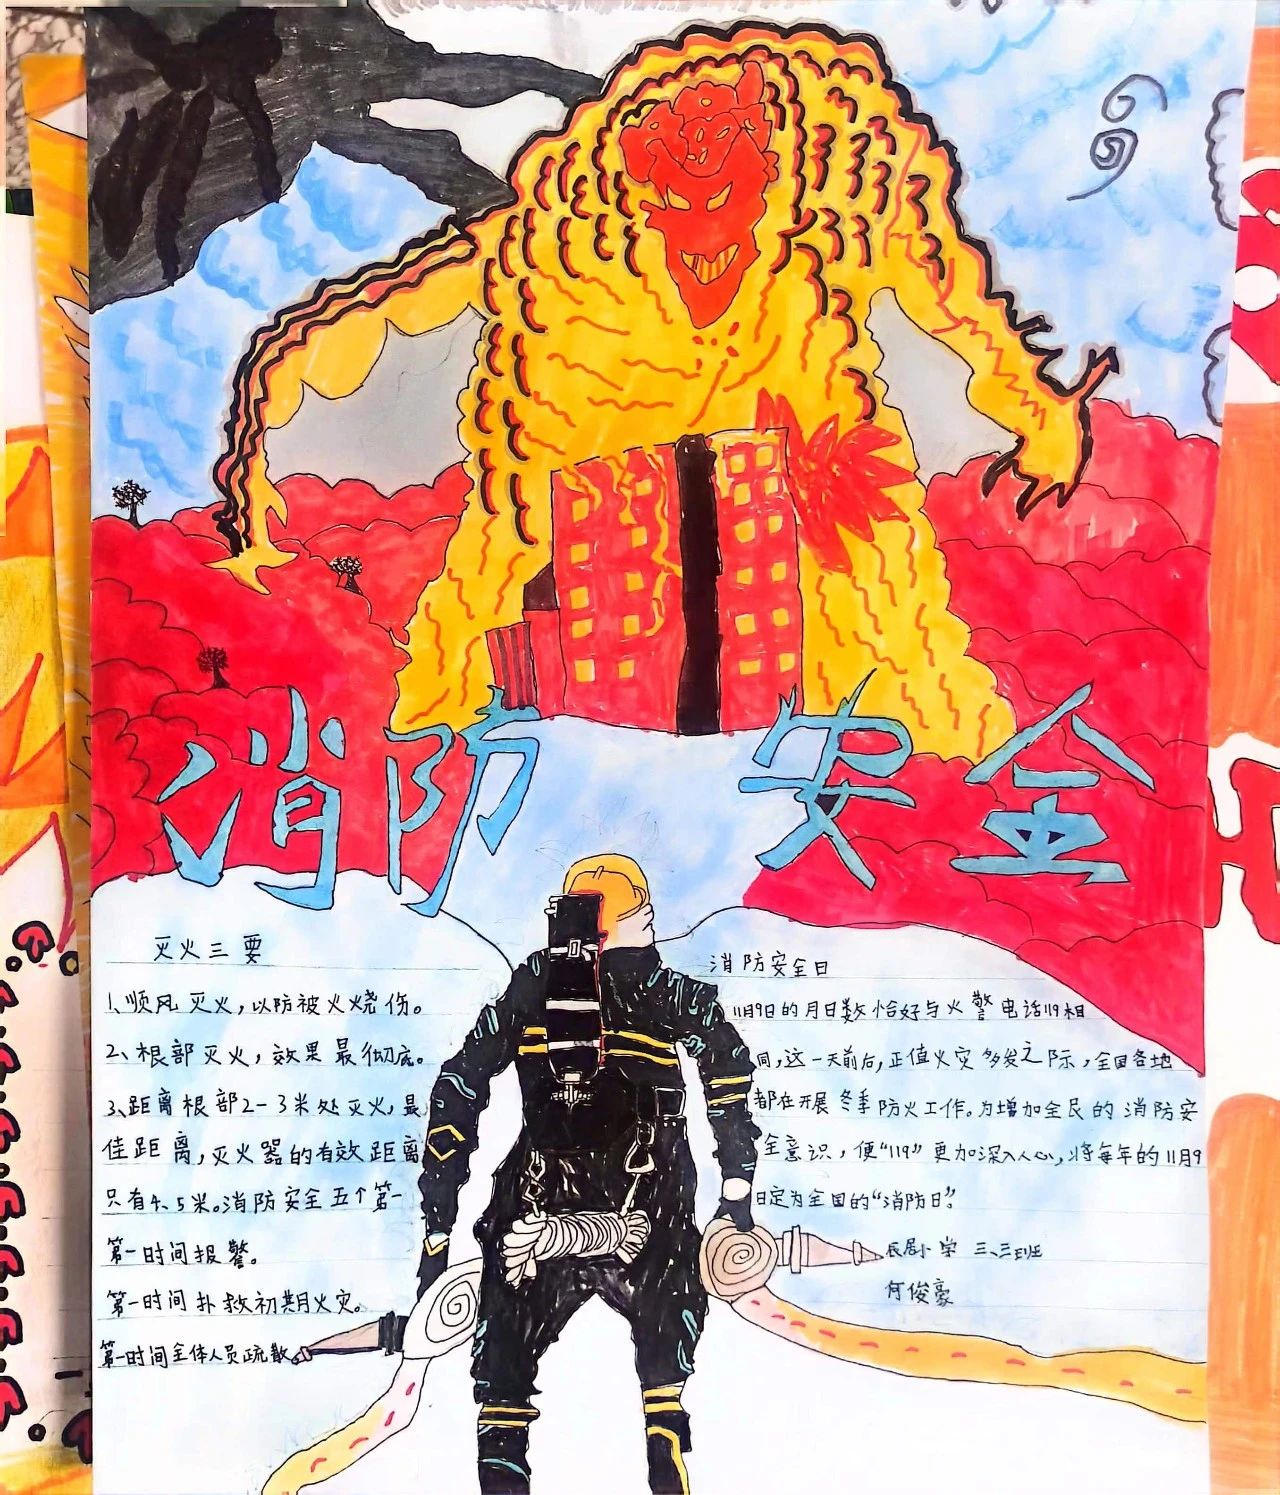 消防安全
灭火三要
1、顺风灭火，以防被火烧伤。
2、根部灭火，效果最彻底。
3、距离根部2-3米处灭火，最
佳距离，灭火器的有效距离
只有4、5米。消防安全五个第一
第一时间报警。
第一时间扑救初期火灾。
第一时间全体人员疏散。
消防安全日
11月9日的月日数恰好与火警电话119相
同，这一天前后，正值火灾多发之际，全国各地
都在开展冬季防火工作。为增加全民的消防安
全意识，便“119”更加深入人心，将每年的11月9
日定为全国的“消防日”。
小学 三、三班
何俊豪